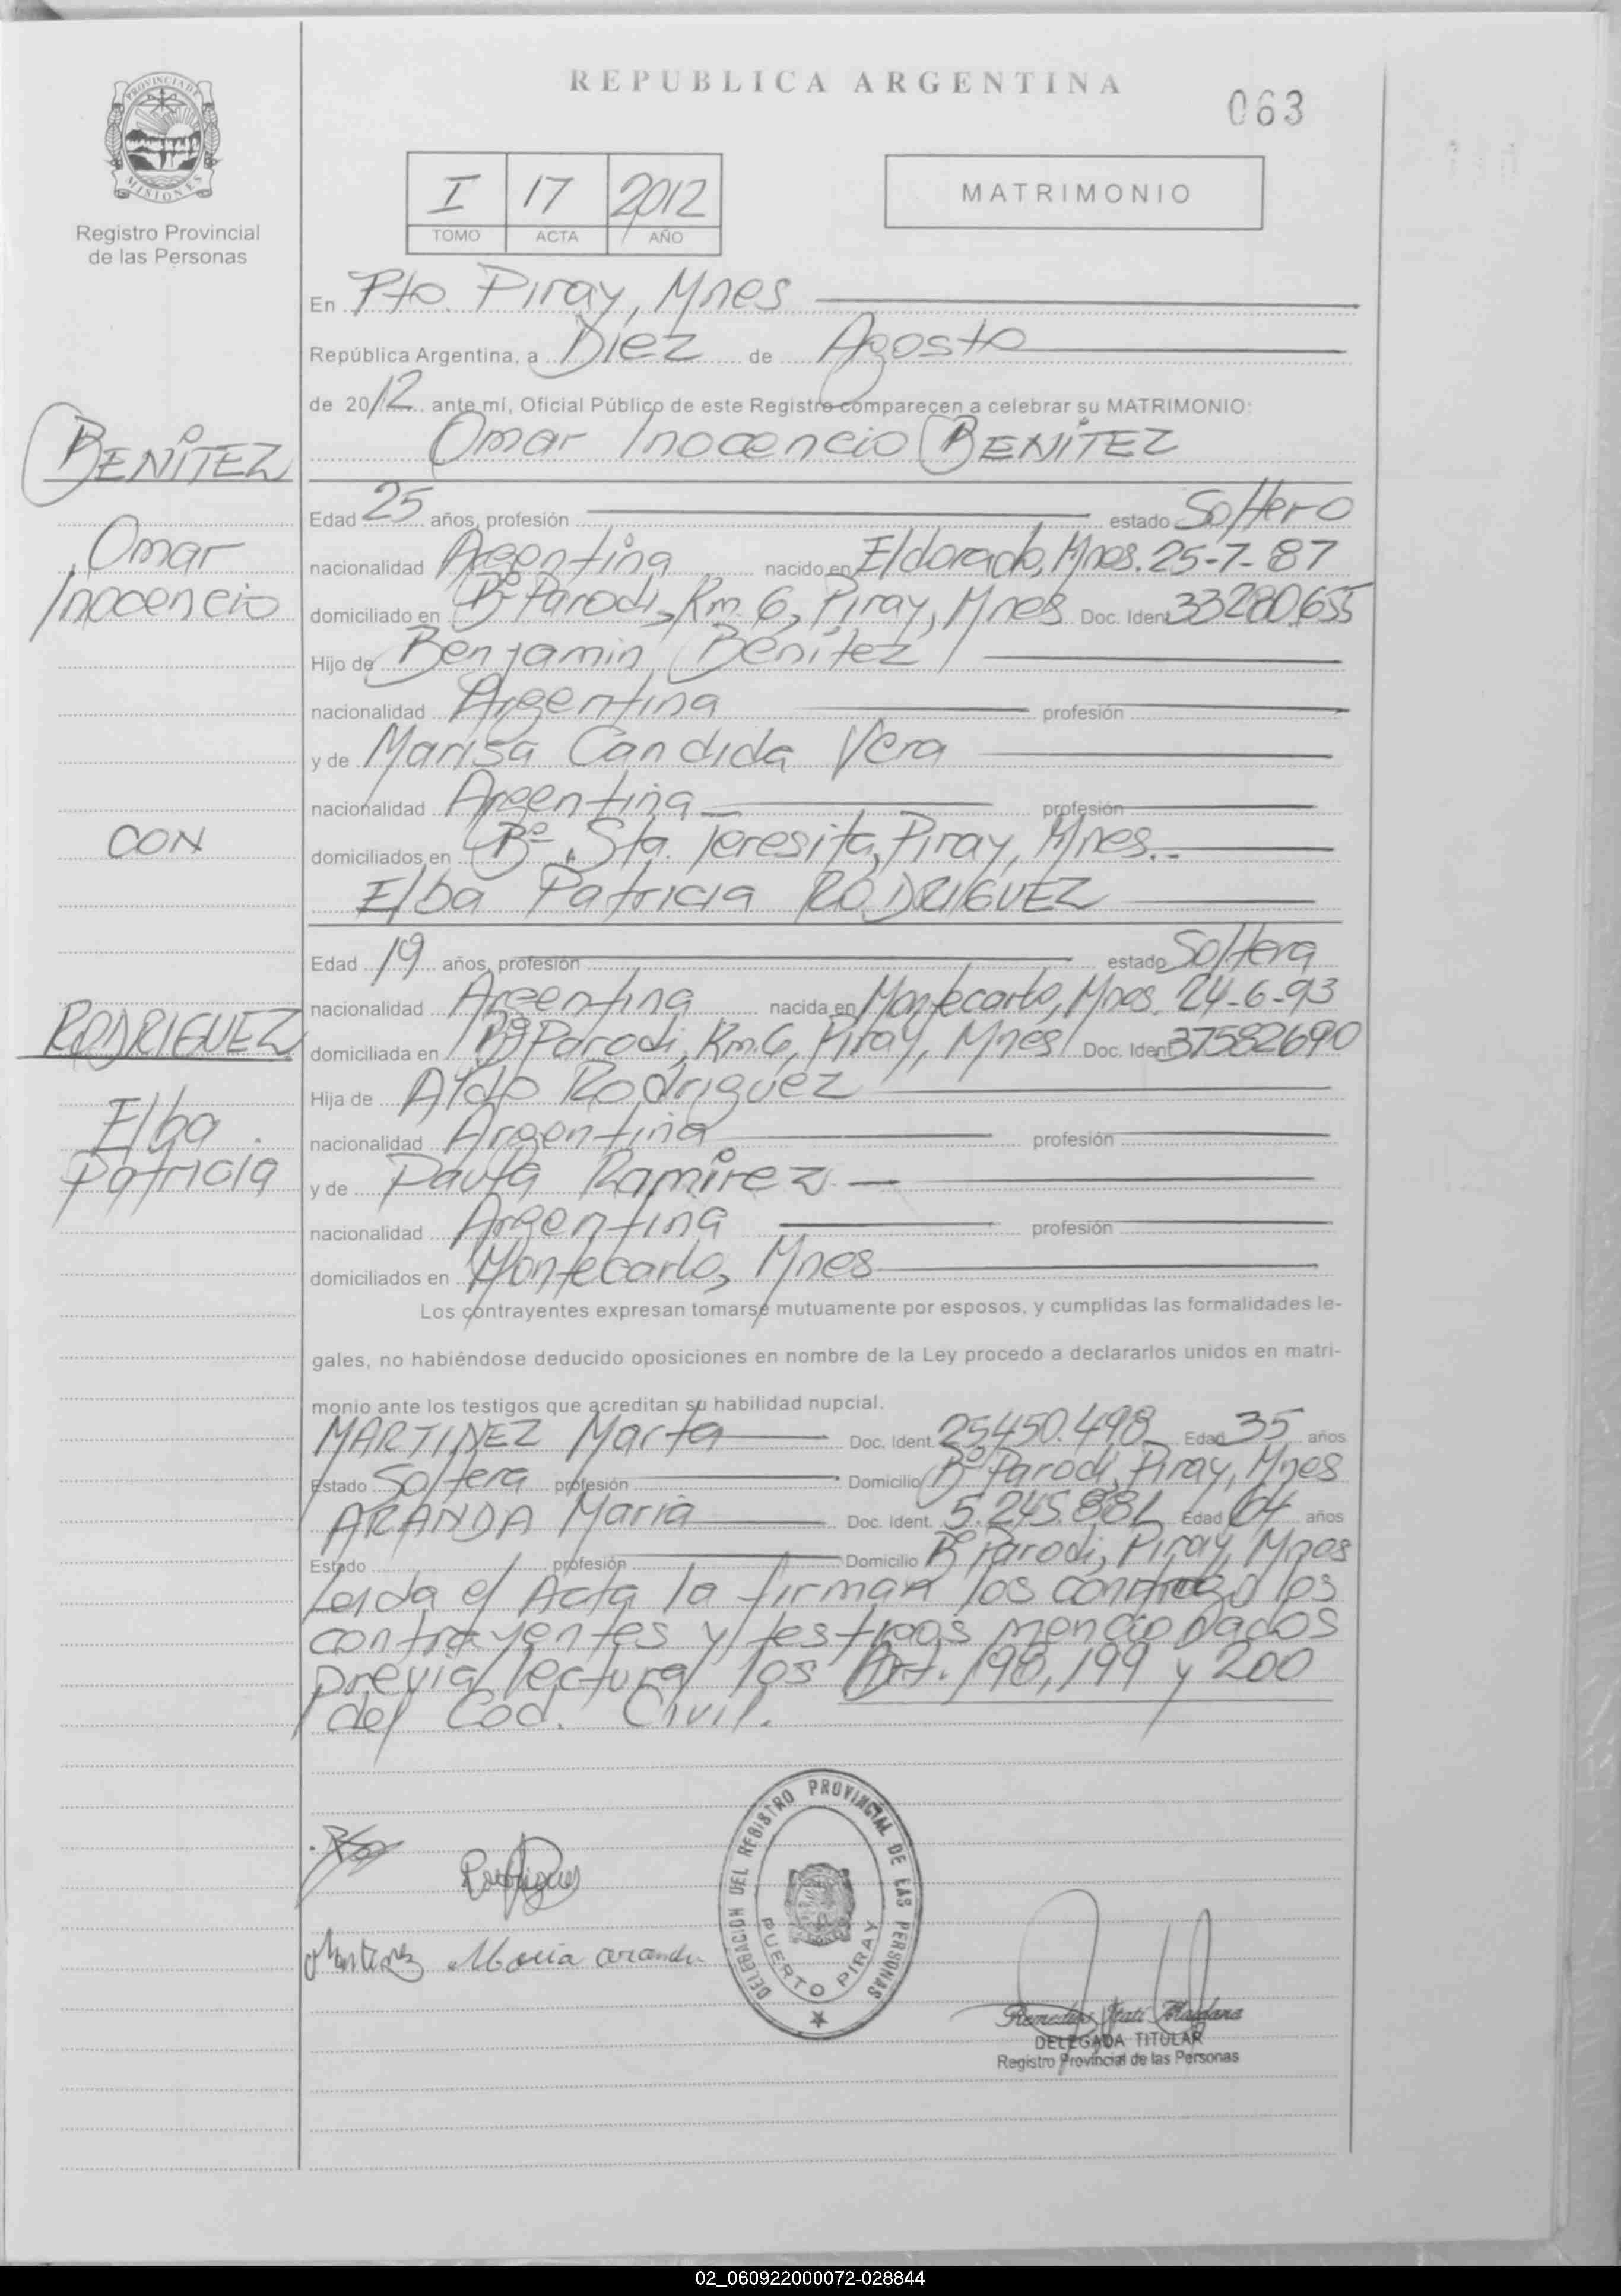 REPUBLICA ARGENTINA
063
PROVINCIA DE
MISIONES
Registro Provincial
de las Personas
I 17 2012
TOMO ACTA AÑO
MATRIMONIO
En Pto. Piray, Mnes
República Argentina, a Diez de Agosto
de 2012 ante mí, Oficial Público de este Registro comparecen a celebrar su MATRIMONIO:
BENITEZ
Omar
Inocencio
CON
RODRIGUEZ
Elba
Patricia
Omar Inocencio BENITEZ
Edad 25 años, profesión estado Soltero
nacionalidad Argentina nacido en Eldorado, Mnes. 25-7-87
domiciliado en Bº Parodi, Km. 6, Piray, Mnes Doc. Ident. 33280.655
Hijo de Benjamin Benitez
nacionalidad Argentina profesión
y de Marisa Candida Vera
nacionalidad Argentina profesión
domiciliados en Bº Sta. Teresita, Piray, Mnes.
Elba Patricia RODRIGUEZ
Edad 19 años, profesión estado Soltera
nacionalidad Argentina nacida en Montecarlo, Mnes. 24-6-93
domiciliada en Bº Parodi, Km. 6, Piray, Mnes Doc. Ident. 37582690
Hija de Aldo Rodriguez
nacionalidad Argentina profesión
y de Paula Ramirez
nacionalidad Argentina profesión
domiciliados en Montecarlo, Mnes
Los contrayentes expresan tomarse mutuamente por esposos, y cumplidas las formalidades le-
gales, no habiéndose deducido oposiciones en nombre de la Ley procedo a declararlos unidos en matri-
monio ante los testigos que acreditan su habilidad nupcial.
MARTINEZ Marta Doc. Ident. 25.450.498 Edad 35 años
Estado Soltera profesión Domicilio Bº Parodi, Piray, Mnes
ARANDA Maria Doc. Ident. 5.245.881 Edad 64 años
Estado profesión Domicilio Bº Parodi, Piray, Mnes
Leida el Acta la firman los los
contrayentes y testigos mencionados
previa lectura los Art. 198, 199 y 200
del Cod. Civil.
Rodriguez
Martinez Maria aranda
DELEGACION DEL REGISTRO PROVINCIAL DE LAS PERSONAS
PUERTO PIRAY
Remedios Itati Maidana
DELEGADA TITULAR
Registro Provincial de las Personas
02_060922000072-028844